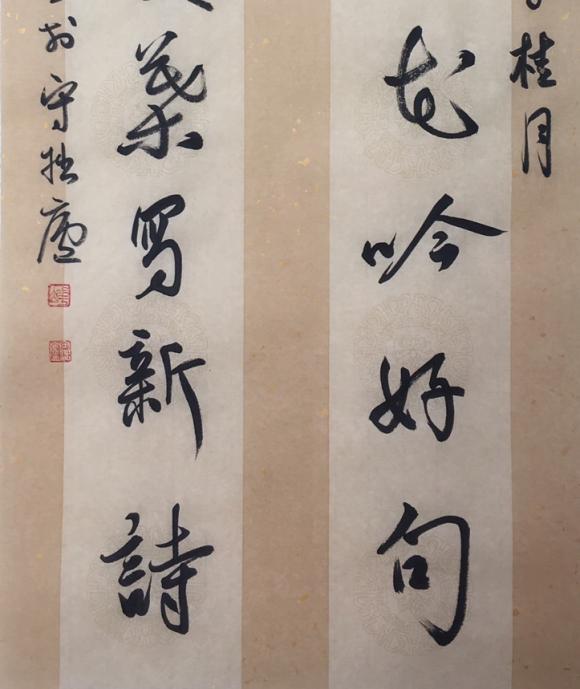 桂月
花吟好句
葉寫新詩
於守拙廬